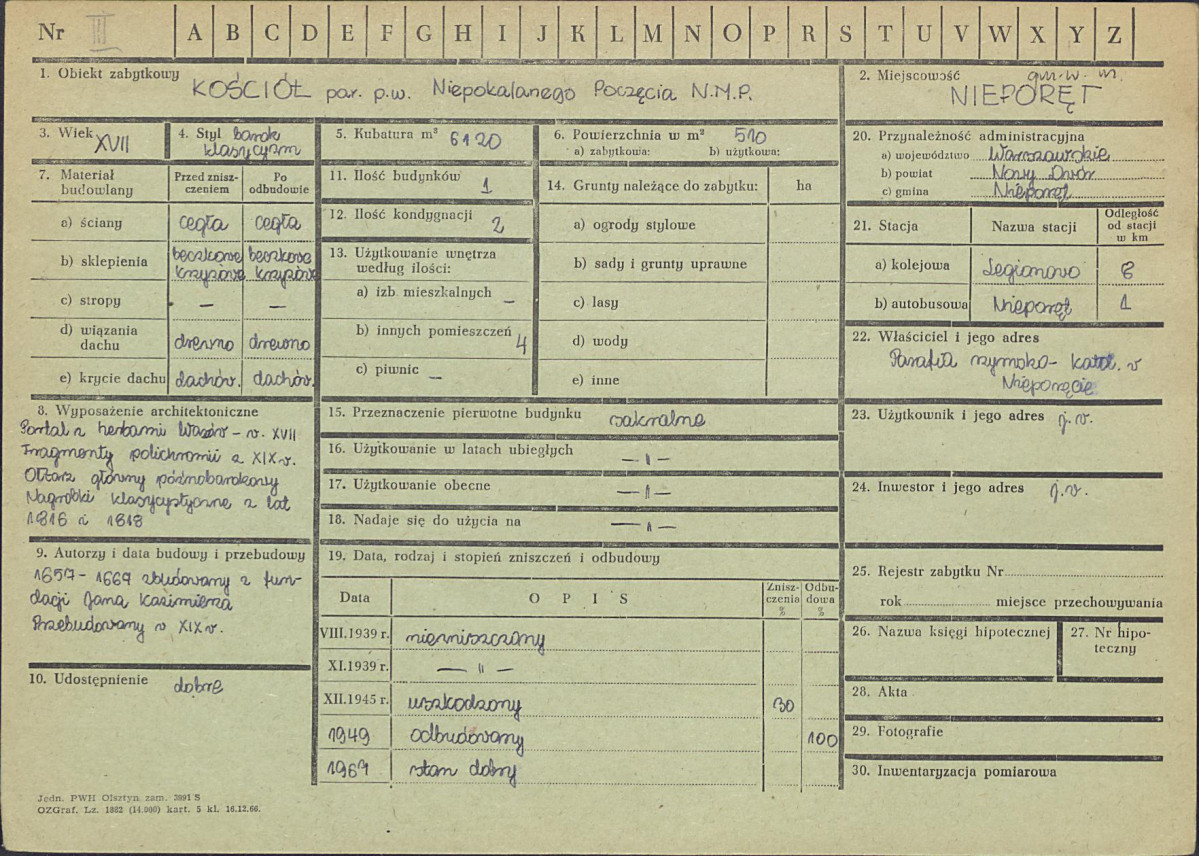 Nr III A B C D E F G H I J K L M N O P R S T U V W X Y Z
1. Obiekt zabytkowy
KOŚCIÓŁ par. p.w. Niepokalanego Poczęcia N.M.P.
2. Miejscowość
NIEPORĘT
3. Wiek
XVII
4. Styl barok
klasycyzm
5. Kubatura m³ 6120
6. Powierzchnia w m² 510
a) zabytkowa: b) użytkowa:
7. Materiał
budowlany
Przed znisz-
czeniem
Po
odbudowie
a) ściany cegła cegła
b) sklepienia beczkowe beczkowe
krzyżowe krzyżowe
c) stropy — —
d) wiązania
dachu drewno drewno
e) krycie dachu dachów. dachów.
8. Wyposażenie architektoniczne
Portal z herbami Wazów – w. XVII
Fragmenty polichromii z XIX w.
Ołtarz główny późnobarokowy
Nagrobki klasycystyczne z lat
1816 i 1818
9. Autorzy i data budowy i przebudowy
zbudowany z fun-
dacji Jana Kazimierza
Przebudowany w XIX w.
10. Udostępnienie dobre
11. Ilość budynków 1
12. Ilość kondygnacji 2
13. Użytkowanie wnętrza
według ilości:
a) izb mieszkalnych —
b) innych pomieszczeń 4
c) piwnic —
14. Grunty należące do zabytku: ha
a) ogrody stylowe
b) sady i grunty uprawne
c) lasy
d) wody
e) inne
15. Przeznaczenie pierwotne budynku sakralne
16. Użytkowanie w latach ubiegłych — „ —
17. Użytkowanie obecne — „ —
18. Nadaje się do użycia na — „ —
19. Data, rodzaj i stopień zniszczeń i odbudowy
Data O P I S
Znisz-
czenia
%
Odbu-
dowa
%
VIII.1939 r. niezniszczony
XI.1939 r. — „ —
XII.1945 r. uszkodzony 30
1949 odbudowany 100
1967 stan dobry
20. Przynależność administracyjna
a) województwo Warszawskie
b) powiat Nowy Dwór
c) gmina Nieporęt
21. Stacja Nazwa stacji
Odległość
od stacji
w km
a) kolejowa Legionowo 8
b) autobusowa Nieporęt 1
22. Właściciel i jego adres
Parafia rzymsko-katol. w
Nieporęcie
23. Użytkownik i jego adres j.w.
24. Inwestor i jego adres j.w.
25. Rejestr zabytku Nr
rok miejsce przechowywania
26. Nazwa księgi hipotecznej
27. Nr hipo-
teczny
28. Akta
29. Fotografie
30. Inwentaryzacja pomiarowa
Jedn. PWH Olsztyn zam. 2091 S
OZGraf. Lz. 1882 (14.000) kart. 5 kl. 16.12.66.